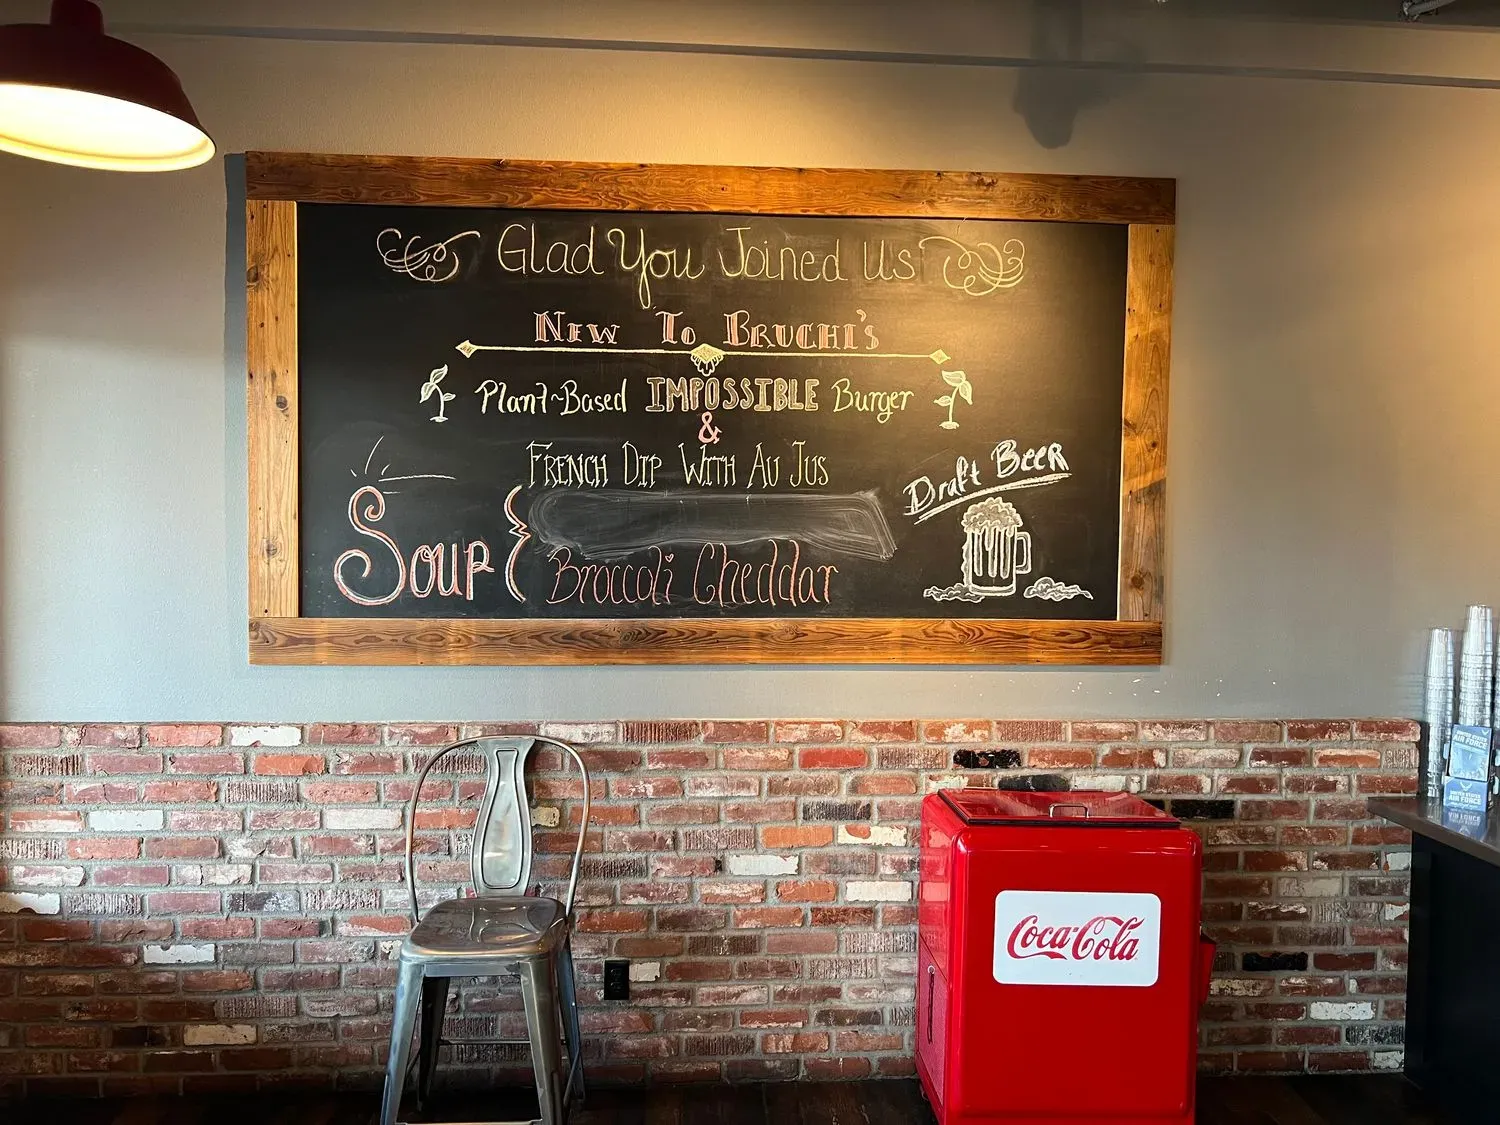 Glad You Joined Us
NEW TO BRUCHI'S
Plant~Based IMPOSSIBLE Burger
&
FRENCH DIP WITH AU JUS
Draft BEER
Soup { Broccoli Cheddar
Coca-Cola
UNITED STATES
AIR FORCE
UNITED STATES
AIR FORCE